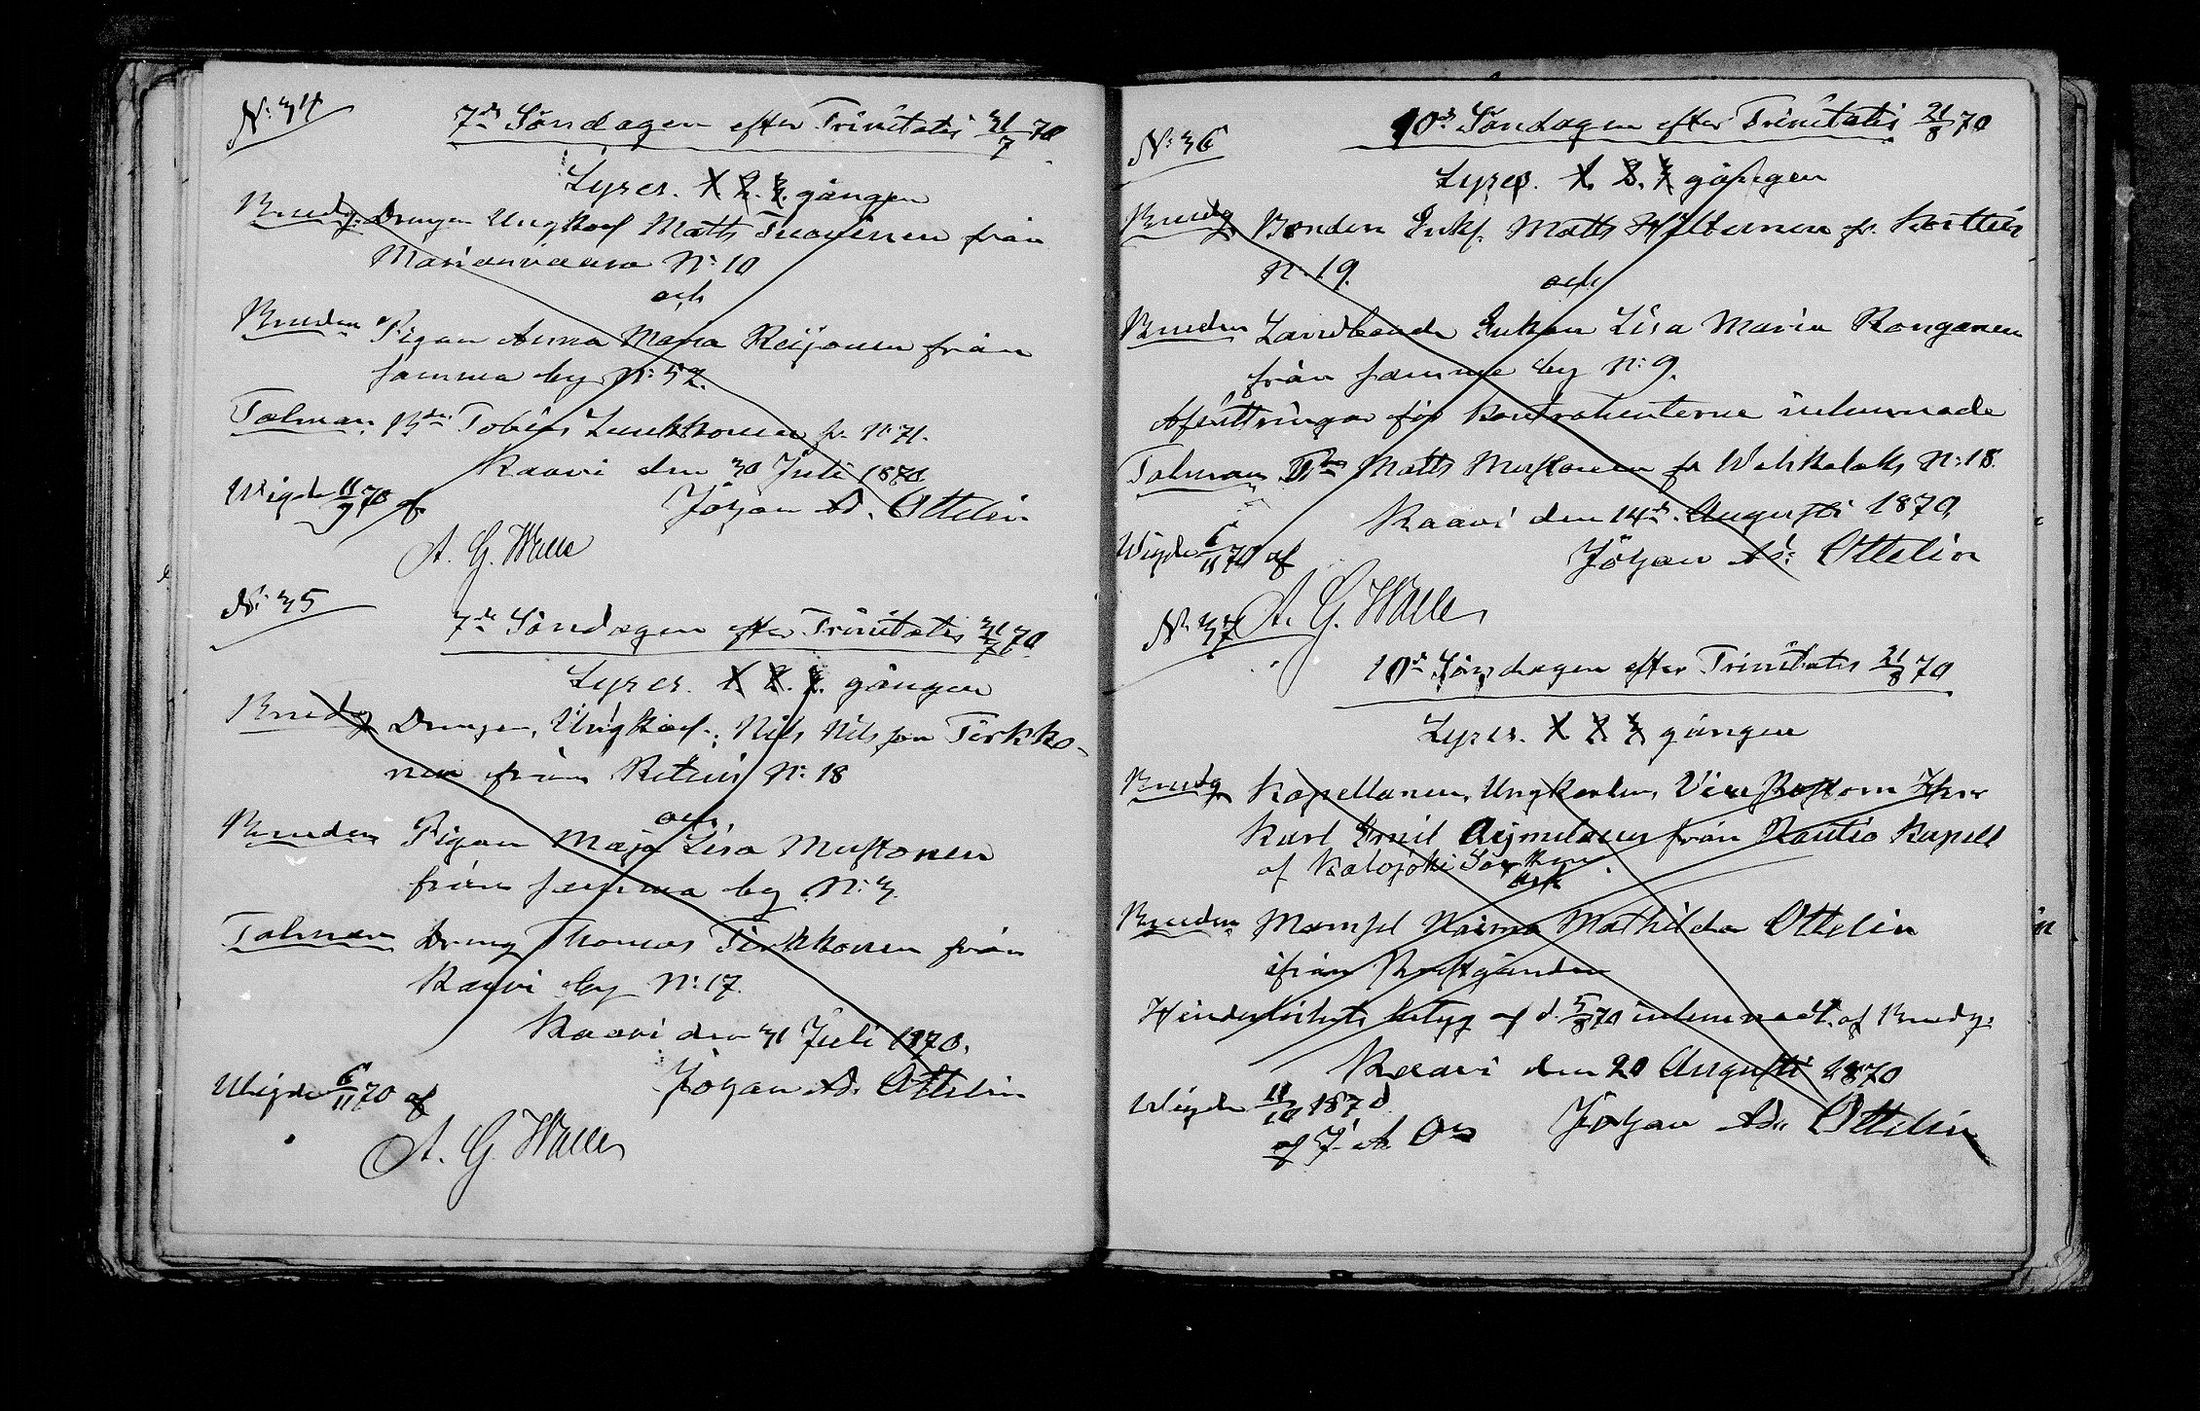 N: 34
7de Söndagen efter Trinitatis 31/7 70
Lyses. 1. 2. 3. gången
Brudg. Drengen Ungkarl Matts Tuovinen från
Marianvaara N: 10
och
Bruden Pigan Anna Maria Reijonen från
samma by N: 52.
Talman Bdn Tobias Lunkkonen fr. N: 71.
Kaavi den 30 Juli 1870
Vigde 11/9 70 af
Johan Ad. Ottelin
A. G. Walle
N: 35
7de Söndagen efter Trinitatis 31/7 70
Lyses. 1. 2. 3. gången
Brudg Drengen, Ungkarl. Nils Nilsson Tirkko-
nen från N: 18
och
Bruden Pigan Maja Lisa Mustonen
från samma by N: 3.
Talman Dreng Thomas Tirkkonen från
Kaavi by N: 17.
Kaavi den 31 Juli 1870.
Johan Ad. Ottelin
Vigde 6/11 70 af
A. G. Walle
N: 36
10de Söndagen efter Trinitatis 21/8 70
Lyses. 1. 2. 3. gången
Brudg Bonden Enkl. Matts Hilbunen fr.
N: 19.
och
Bruden Landbonde Enkan Lisa Maria Ronganen
från samma by N: 9.
Afvittringar för kontrahenterne inlemnade
Talman Matts Mustonen fr N: 18.
Kaavi den 14de Augusti 1870,
Vigde 6/11 70 af
Johan Ad: Ottelin
A. G. Walle
N: 37
10de Söndagen efter Trinitatis 21/8 70
Lyses. 1 2 3 gången
Brudg Kapellanen, Ungkarlen, Vice Pastorn Herr
Karl Emil Aejmelaeus från Rautio Kapell
af Kalajoki Socken
och
Bruden Mamsel Naima Mathilda Ottelin
ifrån Prestgården
Hinderlöshets betyg af d. 5/8 70 inlemnadt af Brudg.
Kaavi den 20 Augusti 1870
Vigde 11/10 1870
af J. A. On
Johan Ad. Ottelin